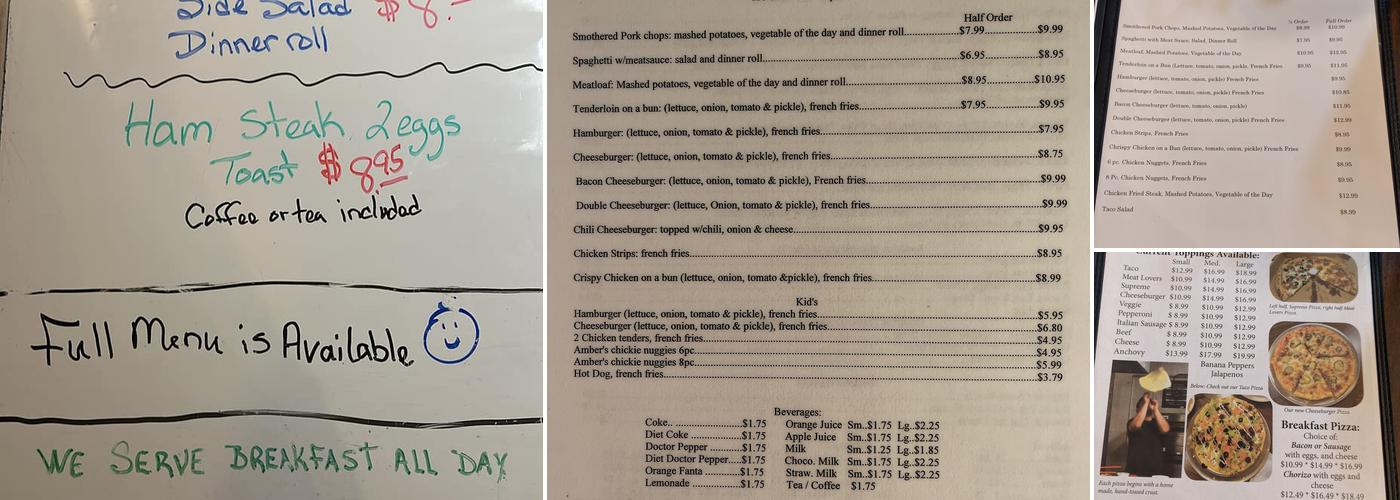 Side Salad $8.-
Dinner roll
Ham Steak 2eggs
Toast $8.95
Coffee or tea included
Full Menu is Available
WE SERVE BREAKFAST ALL DAY
Half Order
Smothered Pork chops: mashed potatoes, vegetable of the day and dinner roll.....$7.99.....$9.99
Spaghetti w/meatsauce: salad and dinner roll.....$6.95.....$8.95
Meatloaf: Mashed potatoes, vegetable of the day and dinner roll.....$8.95.....$10.95
Tenderloin on a bun: (lettuce, onion, tomato & pickle), french fries.....$7.95.....$9.95
Hamburger: (lettuce, onion, tomato & pickle), french fries.....$7.95
Cheeseburger: (lettuce, onion, tomato & pickle), french fries.....$8.75
Bacon Cheeseburger: (lettuce, onion, tomato & pickle), French fries.....$9.99
Double Cheeseburger: (lettuce, Onion, tomato & pickle), french fries.....$9.99
Chili Cheeseburger: topped w/chili, onion & cheese.....$9.95
Chicken Strips: french fries.....$8.95
Crispy Chicken on a bun (lettuce, onion, tomato &pickle), french fries.....$8.99
Kid's
Hamburger (lettuce, onion, tomato & pickle), french fries.....$5.95
Cheeseburger (lettuce, onion, tomato & pickle), french fries.....$6.80
2 Chicken tenders, french fries.....$4.95
Amber's chickie nuggies 6pc.....$4.95
Amber's chickie nuggies 8pc.....$5.99
Hot Dog, french fries.....$3.79
Beverages:
Coke.. .....$1.75
Diet Coke .....$1.75
Doctor Pepper .....$1.75
Diet Doctor Pepper.....$1.75
Orange Fanta .....$1.75
Lemonade .....$1.75
Orange Juice Sm..$1.75 Lg..$2.25
Apple Juice Sm..$1.75 Lg..$2.25
Milk Sm..$1.25 Lg..$1.85
Choco. Milk Sm..$1.75 Lg..$2.25
Straw. Milk Sm..$1.75 Lg..$2.25
Tea / Coffee $1.75
½ Order Full Order
Smothered Pork Chops, Mashed Potatoes, Vegetable of the Day $8.99 $10.99
Spaghetti with Meat Sauce, Salad, Dinner Roll $7.95 $9.95
Meatloaf, Mashed Potatoes, Vegetable of the Day $10.95 $12.95
Tenderloin on a Bun (Lettuce, tomato, onion, pickle), French Fries $9.95 $11.95
Hamburger (lettuce, tomato, onion, pickle) French Fries $9.95
Cheeseburger (lettuce, tomato, onion, pickle) French Fries $10.85
Bacon Cheeseburger (lettuce, tomato, onion, pickle) $11.95
Double Cheeseburger (lettuce, tomato, onion, pickle) French Fries $12.99
Chicken Strips, French Fries $8.95
Chrispy Chicken on a Bun (lettuce, tomato, onion, pickle) French Fries $9.99
6 pc. Chicken Nuggets, French Fries $8.95
8 Pc. Chicken Nuggets, French Fries $9.95
Chicken Fried Steak, Mashed Potatoes, Vegetable of the Day $12.99
Taco Salad $8.99
Current Toppings Available:
Small Med. Large
Taco $12.99 $16.99 $18.99
Meat Lovers $10.99 $14.99 $16.99
Supreme $10.99 $14.99 $16.99
Cheeseburger $10.99 $14.99 $16.99
Veggie $ 8.99 $10.99 $12.99
Pepperoni $ 8.99 $10.99 $12.99
Italian Sausage $ 8.99 $10.99 $12.99
Beef $ 8.99 $10.99 $12.99
Cheese $ 8.99 $10.99 $12.99
Anchovy $13.99 $17.99 $19.99
Banana Peppers
Jalapenos
Below: Check out our Taco Pizza
Each pizza begins with a home
made, hand-tossed crust.
Left half, Supreme Pizza, right half Meat
Lovers Pizza.
Our new Cheeseburger Pizza
Breakfast Pizza:
Choice of:
Bacon or Sausage
with eggs, and cheese
$10.99 * $14.99 * $16.99
Chorizo with eggs and
cheese
$12.49 * $16.49 * $18.49